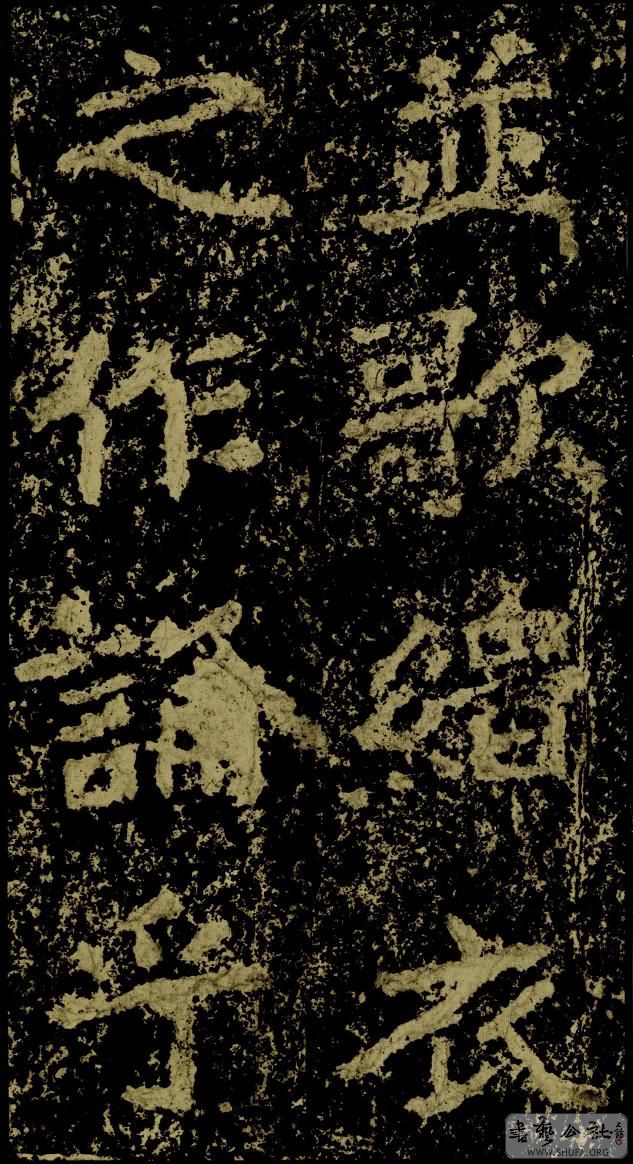 並歌緇衣
之作論乎
書藝公社
WWW.SHUFA.ORG